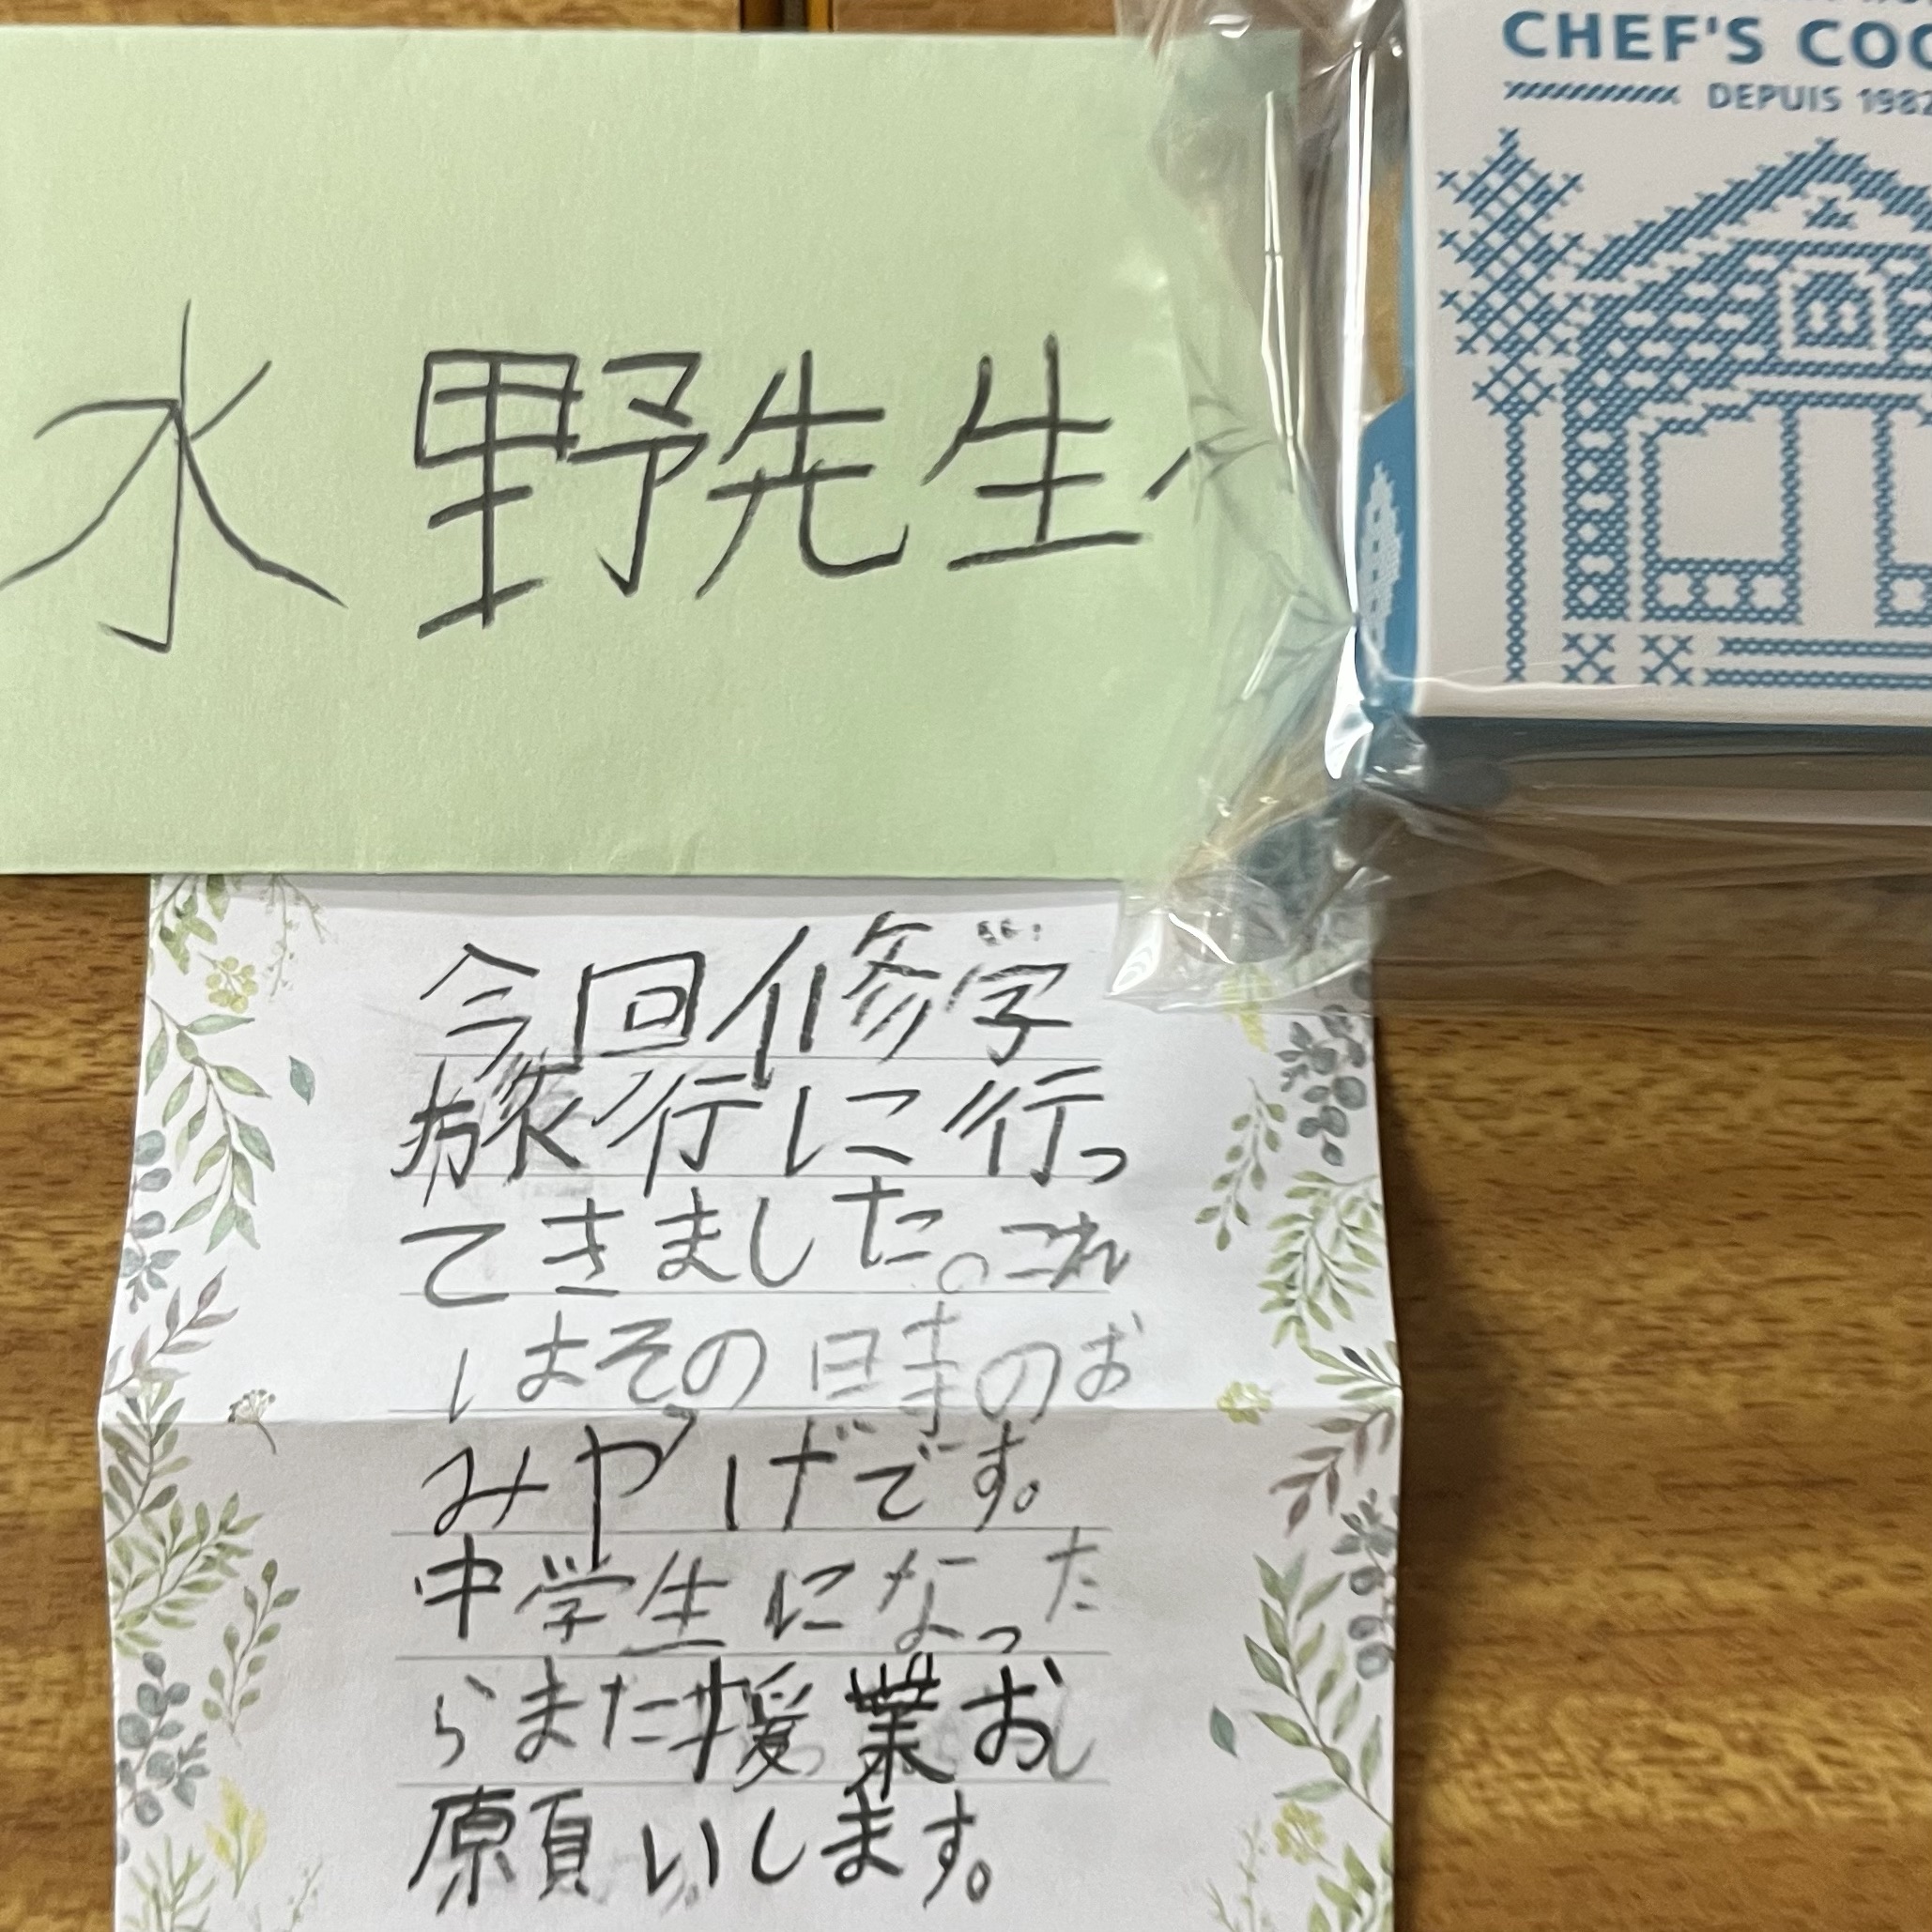 CHEF'S COO
DEPUIS 1982
水野先生へ
今回修学
旅行に行っ
てきました。これ
はその時のお
みやげです。
中学生になった
らまた授業お
願いします。